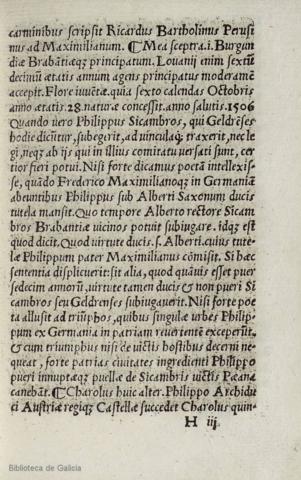 carminibus scripsit Ricardus Bartholinus Perusi
nus ad Maximilianum. ¶Mea sceptra.i. Burgun
diæ Brabātiæq; principatum. Louanij enim sextū
decimū ætatis annum agens principatus moderamē
accepit. Flore iuuētæ. quia sexto calendas Octobris
anno ætatis .28. naturæ concessit. anno salutis .1506
Quando uero Philippus Sicambros, qui Geldrēses
hodie dicūtur, subegerit, ad uinculaq; traxerit, nec le
gi, neq; ab ijs qui in illius comitatu uersati sunt, cer
tior fieri potui. Nisi forte dicamus poetā intellexis-
se, quādo Frederico Maximilianoq; in Germaniā
abeuntibus Philippus sub Alberti Saxonum ducis
tutela mansit. Quo tempore Alberto rectore Sicam
bros Brabantiæ uicinos potuit subiugare. idq; est
quod dicit. Quod uirtute ducis. s. Alberti. cuius tute-
læ Philippum pater Maximilianus cōmisit. Si hæc
sententia displicuerit: sit alia, quod quāuis esset puer
sedecim annorū, uirtute tamen ducis & non pueri Si
cambros seu Geldrenses subiugauerit. Nisi forte poe
ta allusit ad triūphos, quibus singulæ urbes Philip-
pum ex Germania in patriam reuertentē exceperūt.
& cum triumphus nisi de uictis hostibus decerni ne-
queat, forte patrias ciuitates ingredienti Philippo
pueri innuptæq; puellæ de Sicambris uictis Pæana
canebāt. ¶Charolus huic alter. Philippo Archidu
ci Austriæ regiq; Castellæ succedet Charolus quin-
H iij.
Biblioteca de Galicia